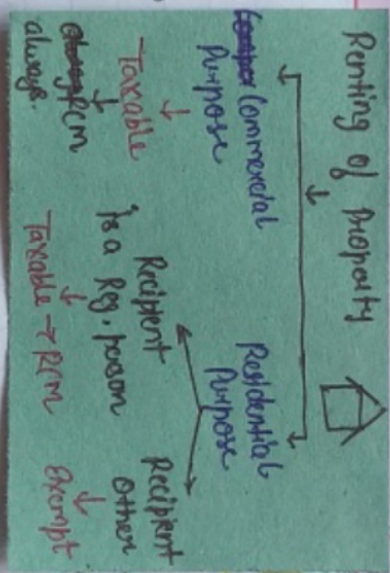 Renting of Property
Commercial
Purpose
Taxable
RCM
always.
Residential
Purpose
Recipient
is a Reg. person
Taxable → RCM
Recipient
Other
Exempt